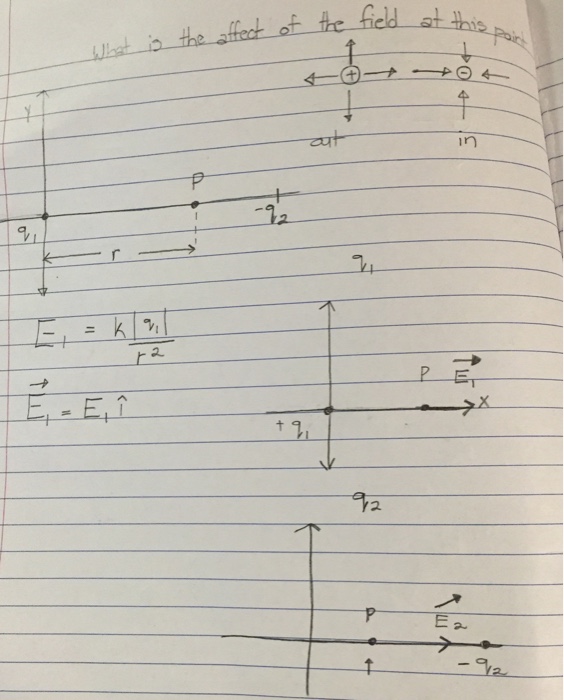 What is the affect of the field at this point
+ -
out in
y
P
q₁ -q₂
r
q₁
E₁ = k |q₁| / r²
P E₁→
x
E₁→ = E₁ î
+q₁
q₂
P E₂→
-q₂